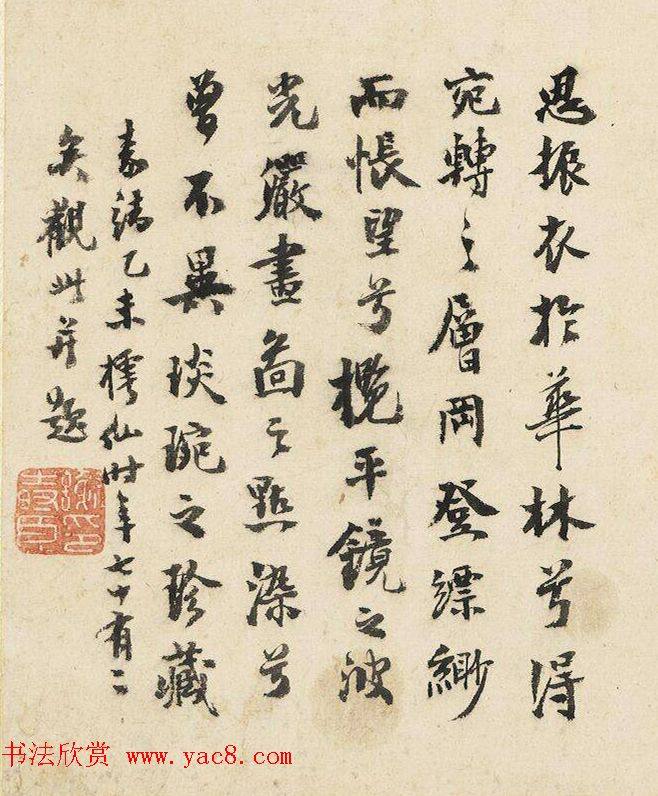 思振衣於華林兮得
宛轉之層岡登縹緲
而悵望兮攬平鏡之波
光嚴畫圖之點染兮
曾不異琰琬之珍藏
嘉靖乙未樗仙時年七十有二
矣觀此并題
书法欣赏 www.yac8.com